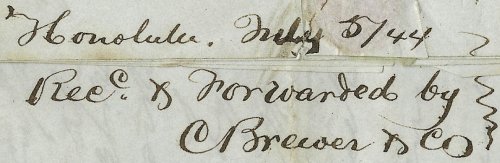 Honolulu. July 5/44
Recd. & Forwarded by
C Brewer & Co